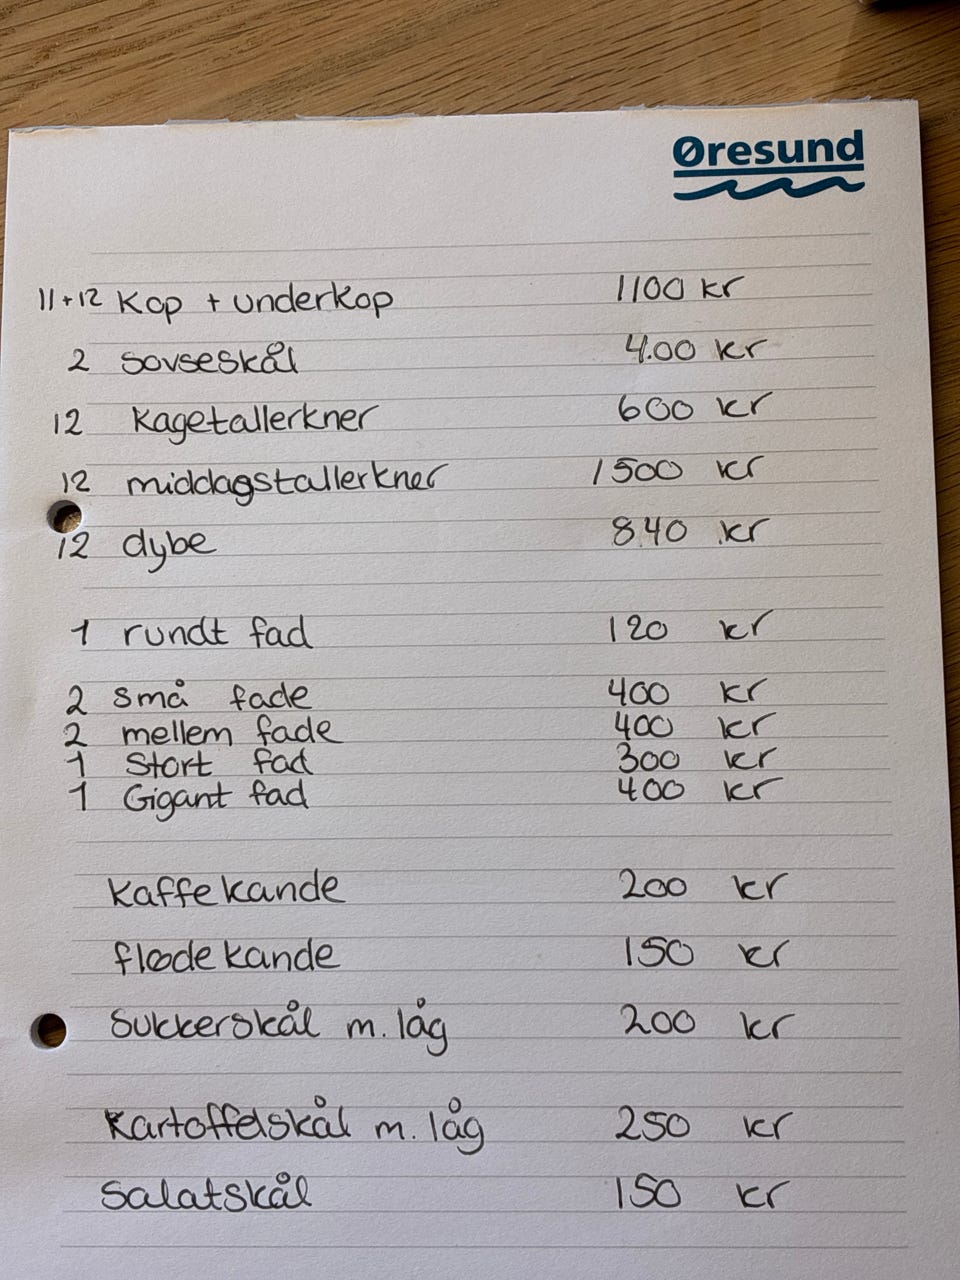 Øresund
11+12 Kop + underkop 1100 kr
2 sovseskål 400 kr
12 Kagetallerkner 600 kr
12 middagstallerkner 1500 kr
12 dybe 840 kr
1 rundt fad 120 kr
2 små fade 400 kr
2 mellem fade 400 kr
1 Stort fad 300 kr
1 Gigant fad 400 kr
Kaffekande 200 kr
flødekande 150 kr
Sukkerskål m. låg 200 kr
Kartoffelskål m. låg 250 kr
Salatskål 150 kr